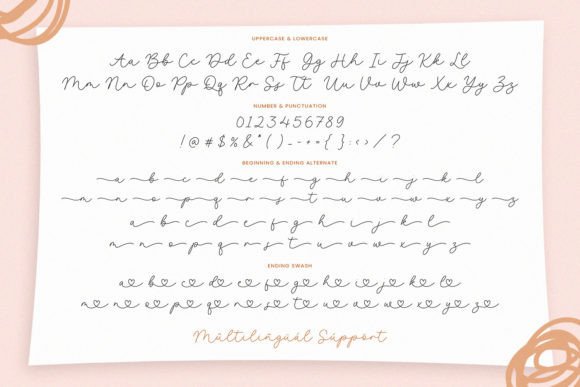 UPPERCASE & LOWERCASE
Aa Bb Cc Dd Ee Ff Gg Hh Ii Jj Kk Ll
Mm Nn Oo Pp Qq Rr Ss Tt Uu Vv Ww Xx Yy Zz
NUMBER & PUNCTUATION
0123456789
!@#$%&*()_-+={}:<>/?
BEGINNING & ENDING ALTERNATE
a b c d e f g h i j k l
m n o p q r s t u v w x y z
a b c d e f g h i j k l
m n o p q r s t u v w x y z
ENDING SWASH
a b c d e f g h i j k l
m n o p q r s t u v w x y z
Mültilingüàl Süppört